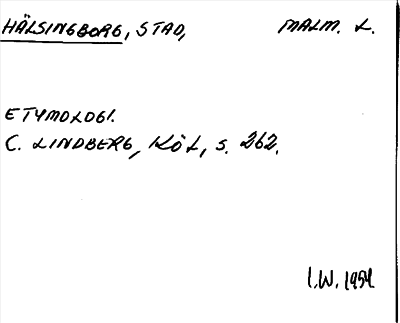 HÄLSINGBORG, STAD, MALM. L.
ETYMOLOGI.
C. LINDBERG, KÖL, s. 262.
I.W. 1954